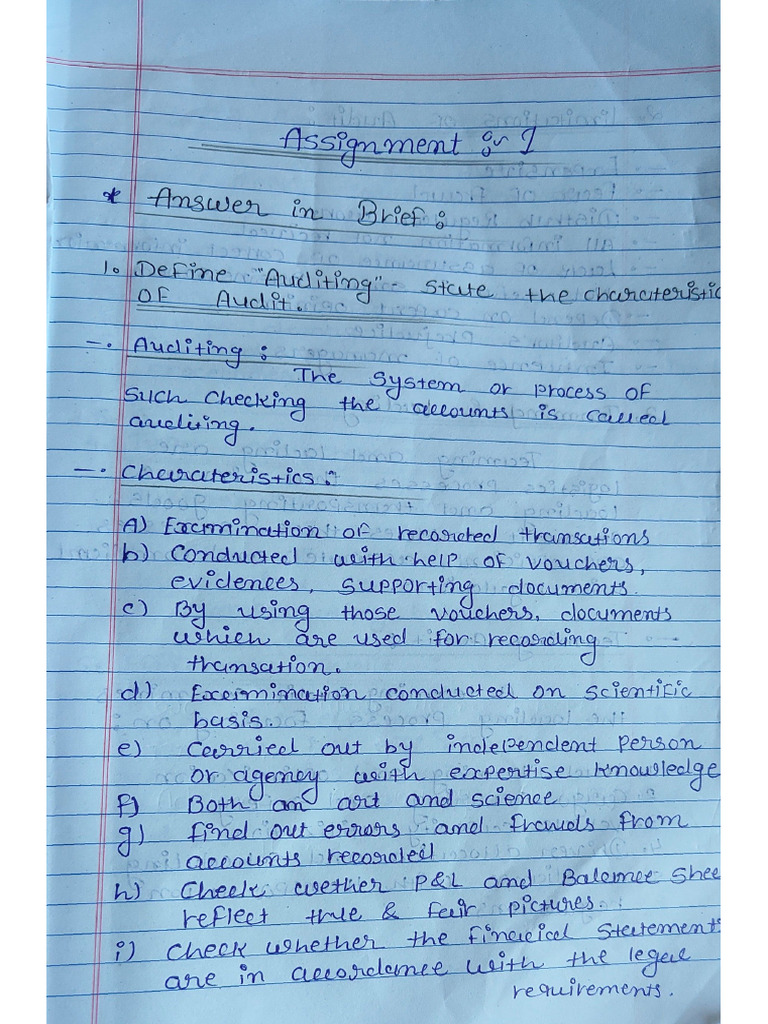 Assignment :- 1
* Answer in Brief :
1. Define "Auditing" - State the charateristic
OF Audit.
-. Auditing :
The System or process of
such checking the accounts is called
auditing.
-. Charateristics :
A) Examination of recorded transations
b) Conducted with help of vouchers,
evidences, supporting documents.
c) By using those vouchers, documents
which are used for recording
transation.
d) Examination conducted on scientific
basis.
e) Carried out by independent person
or agency with expertise knowledge
f) Both an art and science
g) find out errors and frauds from
accounts recorded
h) Check wether P&L and Balance Shee
reflect true & fair pictures.
i) check whether the finacical Statements
are in accordance with the legal
requirements.